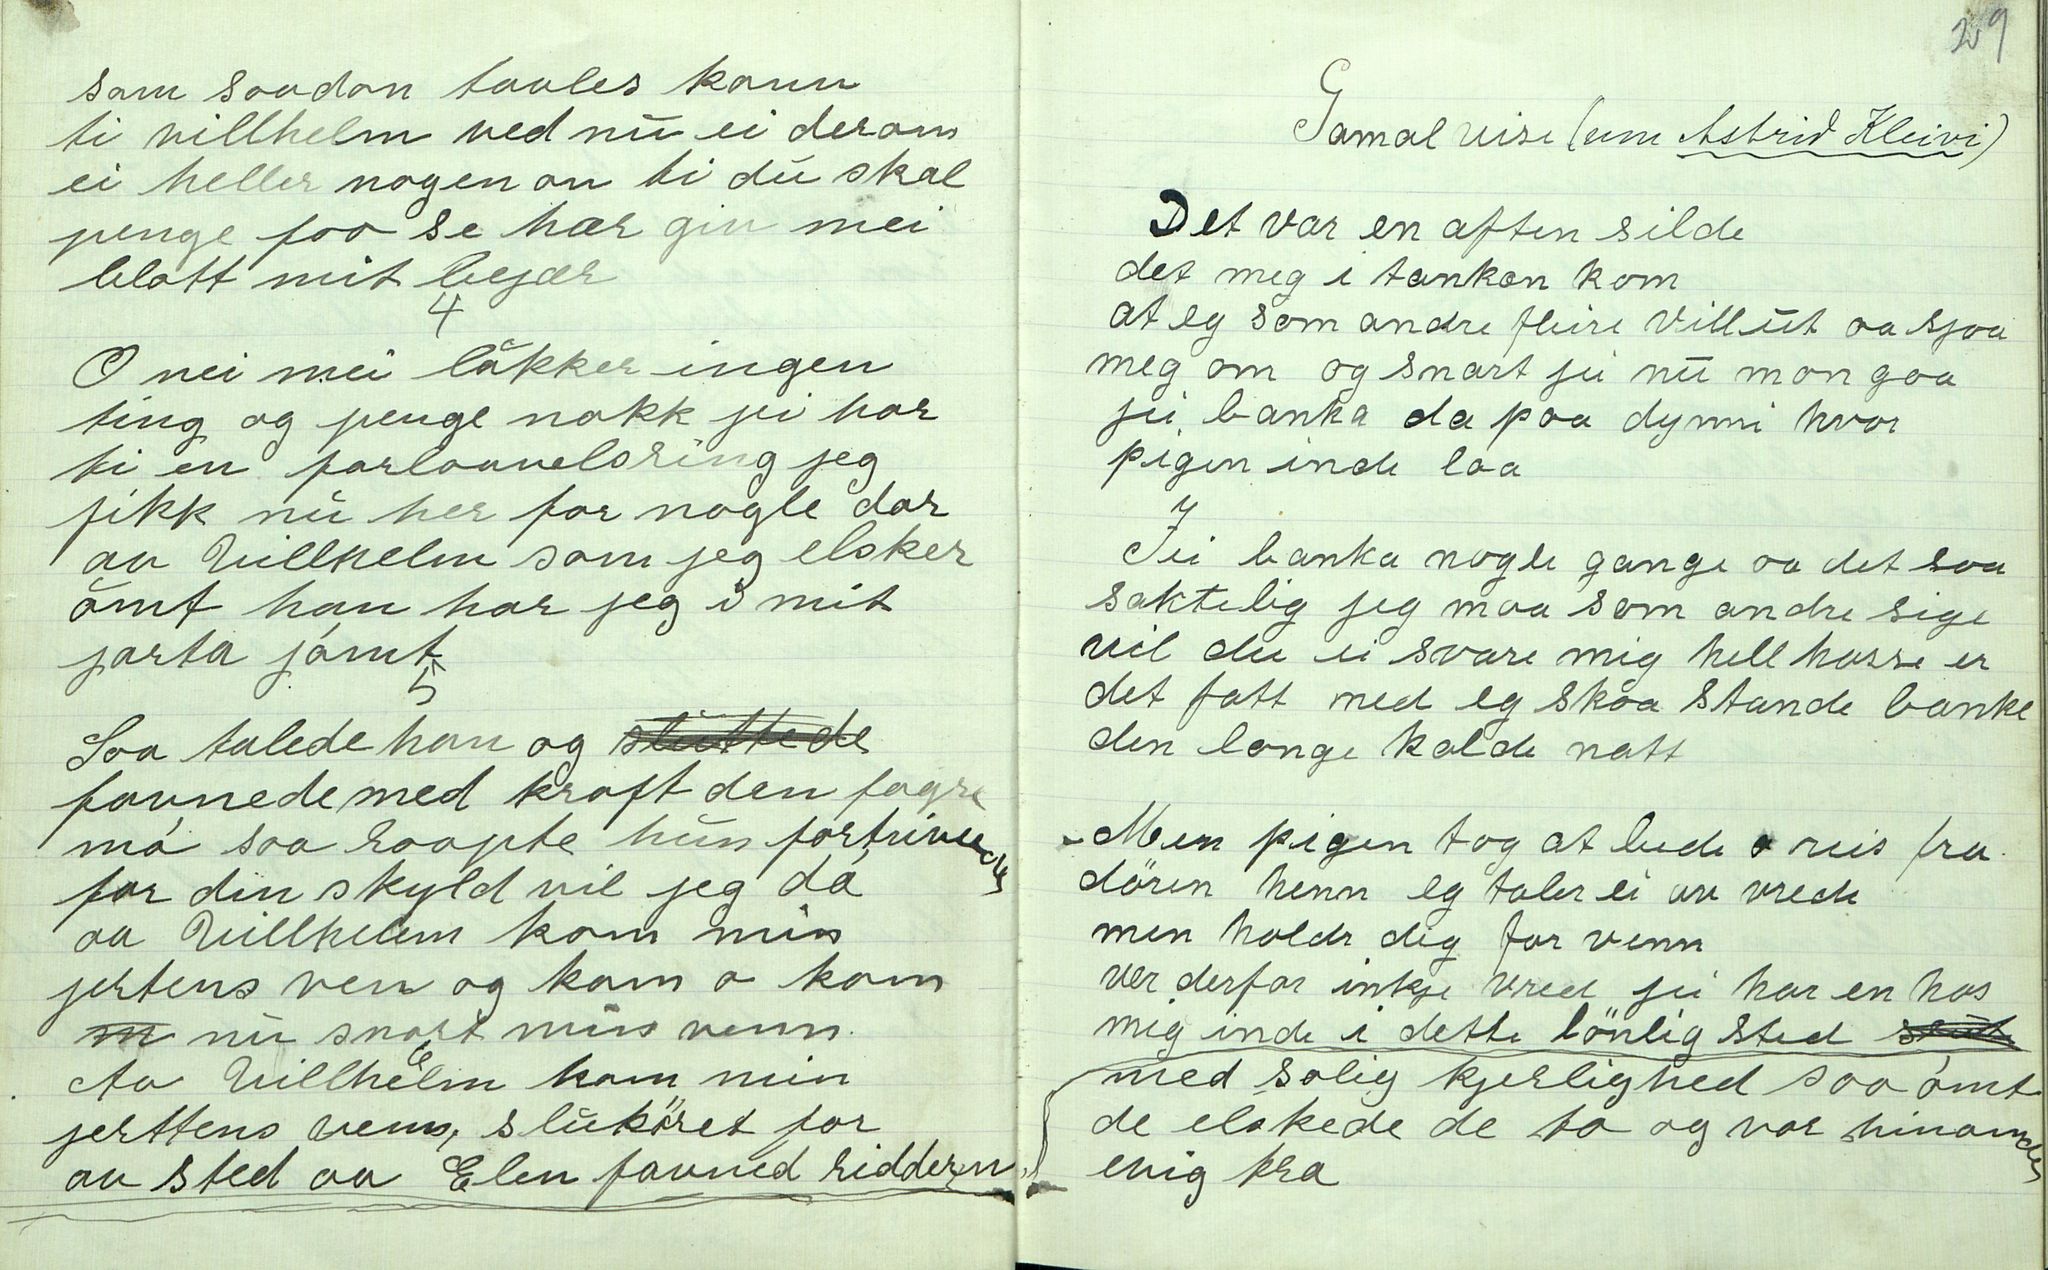 som saadan taales kann
ti villhelm ved nū ei derom
ei heller nogen an ti dū skal
penge faa se hær giv mei
blott mit bejær
4
O nei mei låkker ingen
ting og penge nokk jei har
ti en farlaavelsring jeg
fikk nū her for nogle dar
av Villhelm som jeg elsker
ömt han har jeg i mit
jarta jámt
5
Saa talede han og slūttede
favnede med kraft den fagre
má saa raapte hūn fortrivlende
for din skyld vil jeg dá
aa Villhelm kom min
jertens ven og kom o kom
m nū snart min venn.
Aa Villhelm kom min
jerttens venn, slūköret for
av sted aa Elen favned ridderen
289
Gamal vise (um Astrid Kleivi)
Det var en aften silde
det meg i tankan kom
at eg som andre fleire vill ūt aa sjaa
meg om og snart jei nū mon gaa
jei banka da paa dynni hvor
pigen inde laa
Jei banka nogle gange aa det saa
saktelig jeg maa som andre sige
vil du ei svare mig hell hasse er
det fatt med eg skaa stande banke
den lange kalde natt
Men pigen tog at lede o reis fra
dören henn eg taler ei av vrede
men holdr dig for venn
ver derfor inkje vred jei har en hos
mig inde i dette lönlig sted
med salig kjerlighed saa ömt
de elskede de to og var hinandes
evig tra